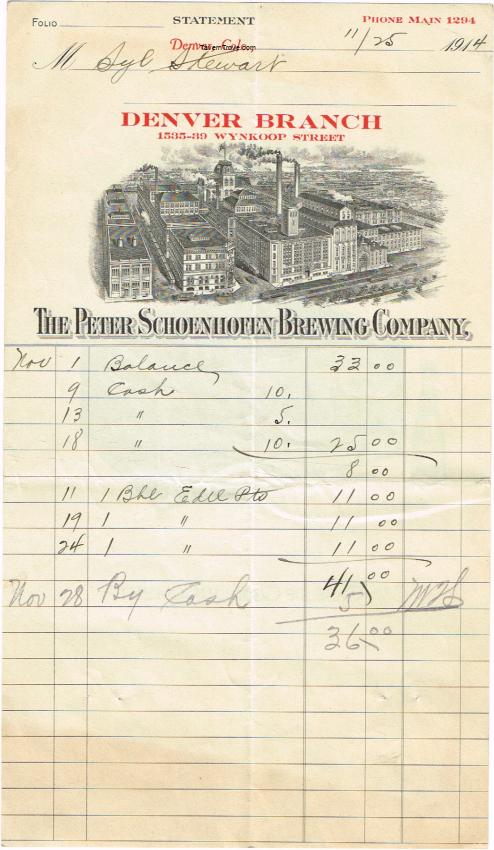 FOLIO STATEMENT PHONE MAIN 1294
Denver, Colo., 11/25 1914
TavernTrove.com
M Syl Stewart
DENVER BRANCH
1535-39 WYNKOOP STREET
THE PETER SCHOENHOFEN BREWING COMPANY.
Nov 1 Balance 33 00
9 Cash 10.
13 " 5.
18 " 10. 25 00
8 00
11 1 Bbl Edel Pts 11 00
19 1 " 11 00
24 1 " 11 00
41 00
Nov 28 By Cash 5
36 00